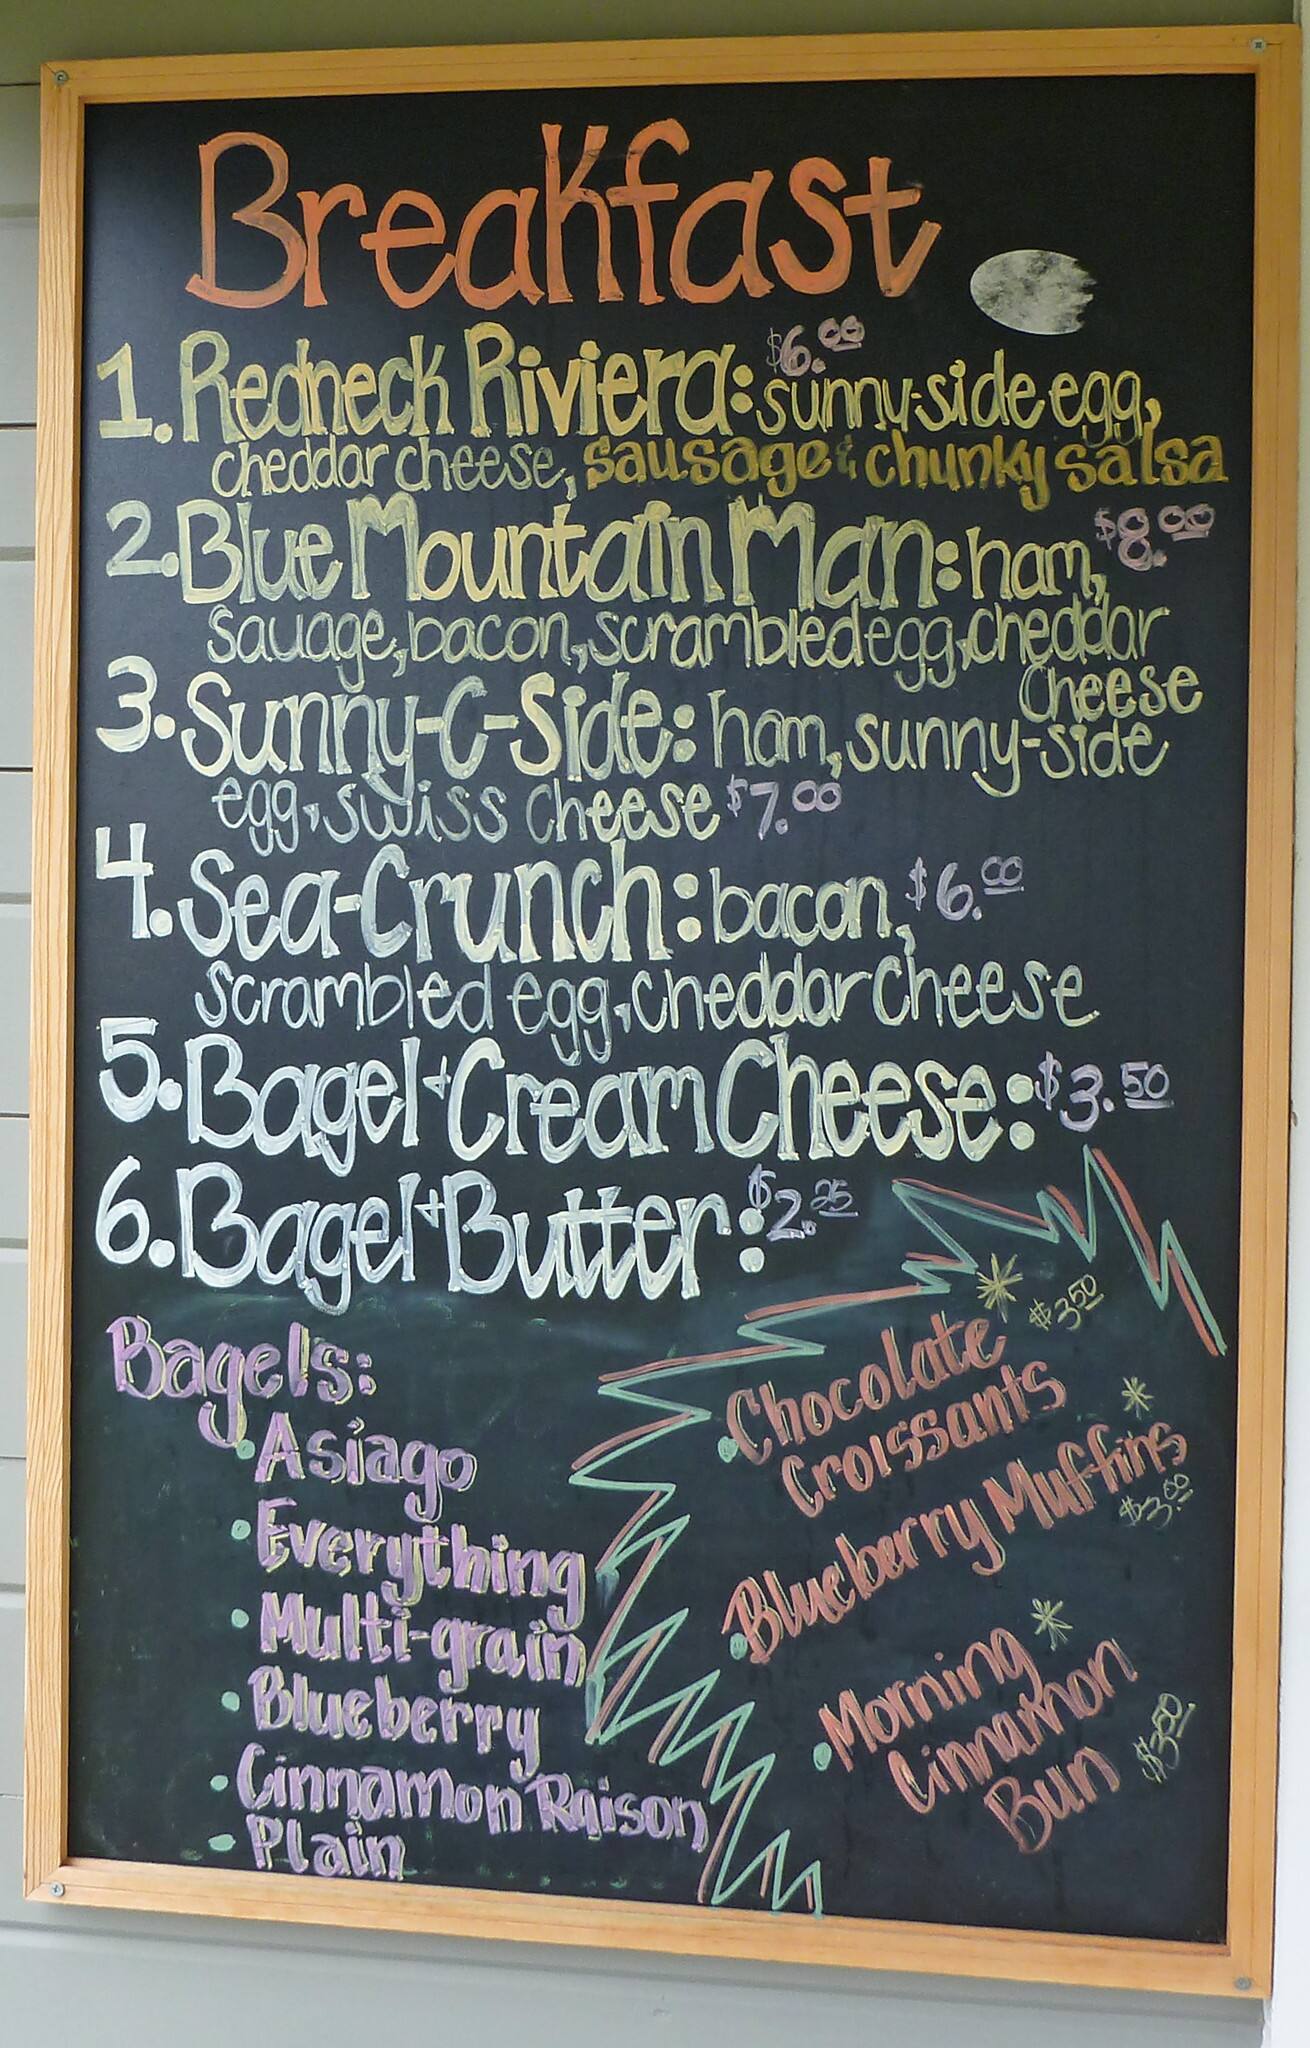 Breakfast
1. Redneck Riviera: $6.00 sunny-side egg,
cheddar cheese, sausage & chunky salsa
2. Blue Mountain Man: ham, $8.00
sauage, bacon, scrambled egg, cheddar
cheese
3. Sunny-C-Side: ham, sunny-side
egg, swiss cheese $7.00
4. Sea-Crunch: bacon, $6.00
scrambled egg, cheddar cheese
5. Bagel + Cream Cheese: $3.50
6. Bagel + Butter: $2.25
Bagels:
• Asiago
• Everything
• Multi-grain
• Blueberry
• Cinnamon Raison
• Plain
• Chocolate $3.50
Croissants
• Blueberry Muffins
$3.00
• Morning
Cinnamon
Bun $3.50